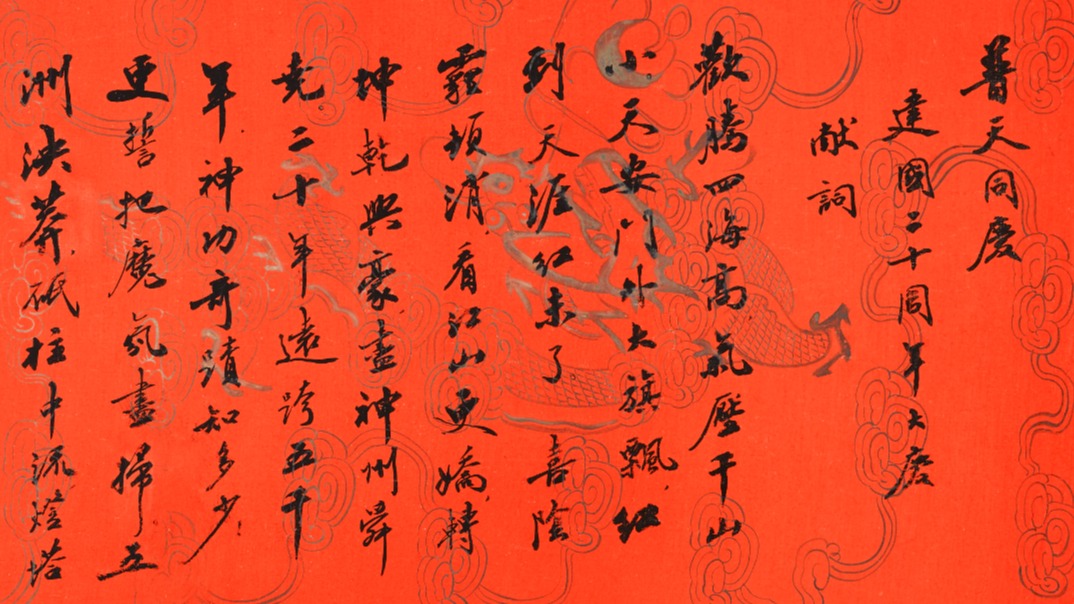 普天同慶
建國二十周年大慶
献詞
歡騰四海高氣壓千山
小天安門外大旗飄紅
到天涯紅未了喜陰
霾頓消看江山更嬌轉
坤乾興豪盡神州舜
尭二十年遠跨五千
年神功奇蹟知多少
更誓把魔氛盡掃五
洲泱莽砥柱中流燈塔